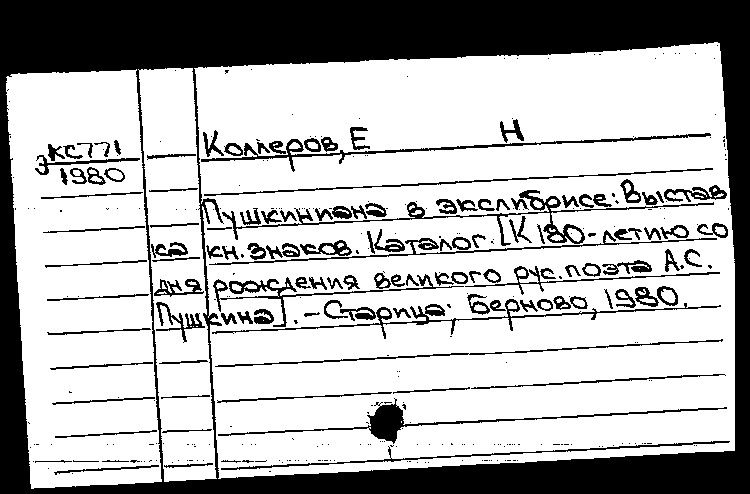 Коллеров, Е Н
ЭКС771
1980
Пушкиниана в экслибрисе: Выстав
ка кн. знаков. Каталог. [К 180-летию со
дня рождения великого рус. поэта А.С.
Пушкина]. - Старица; Берново, 1980.